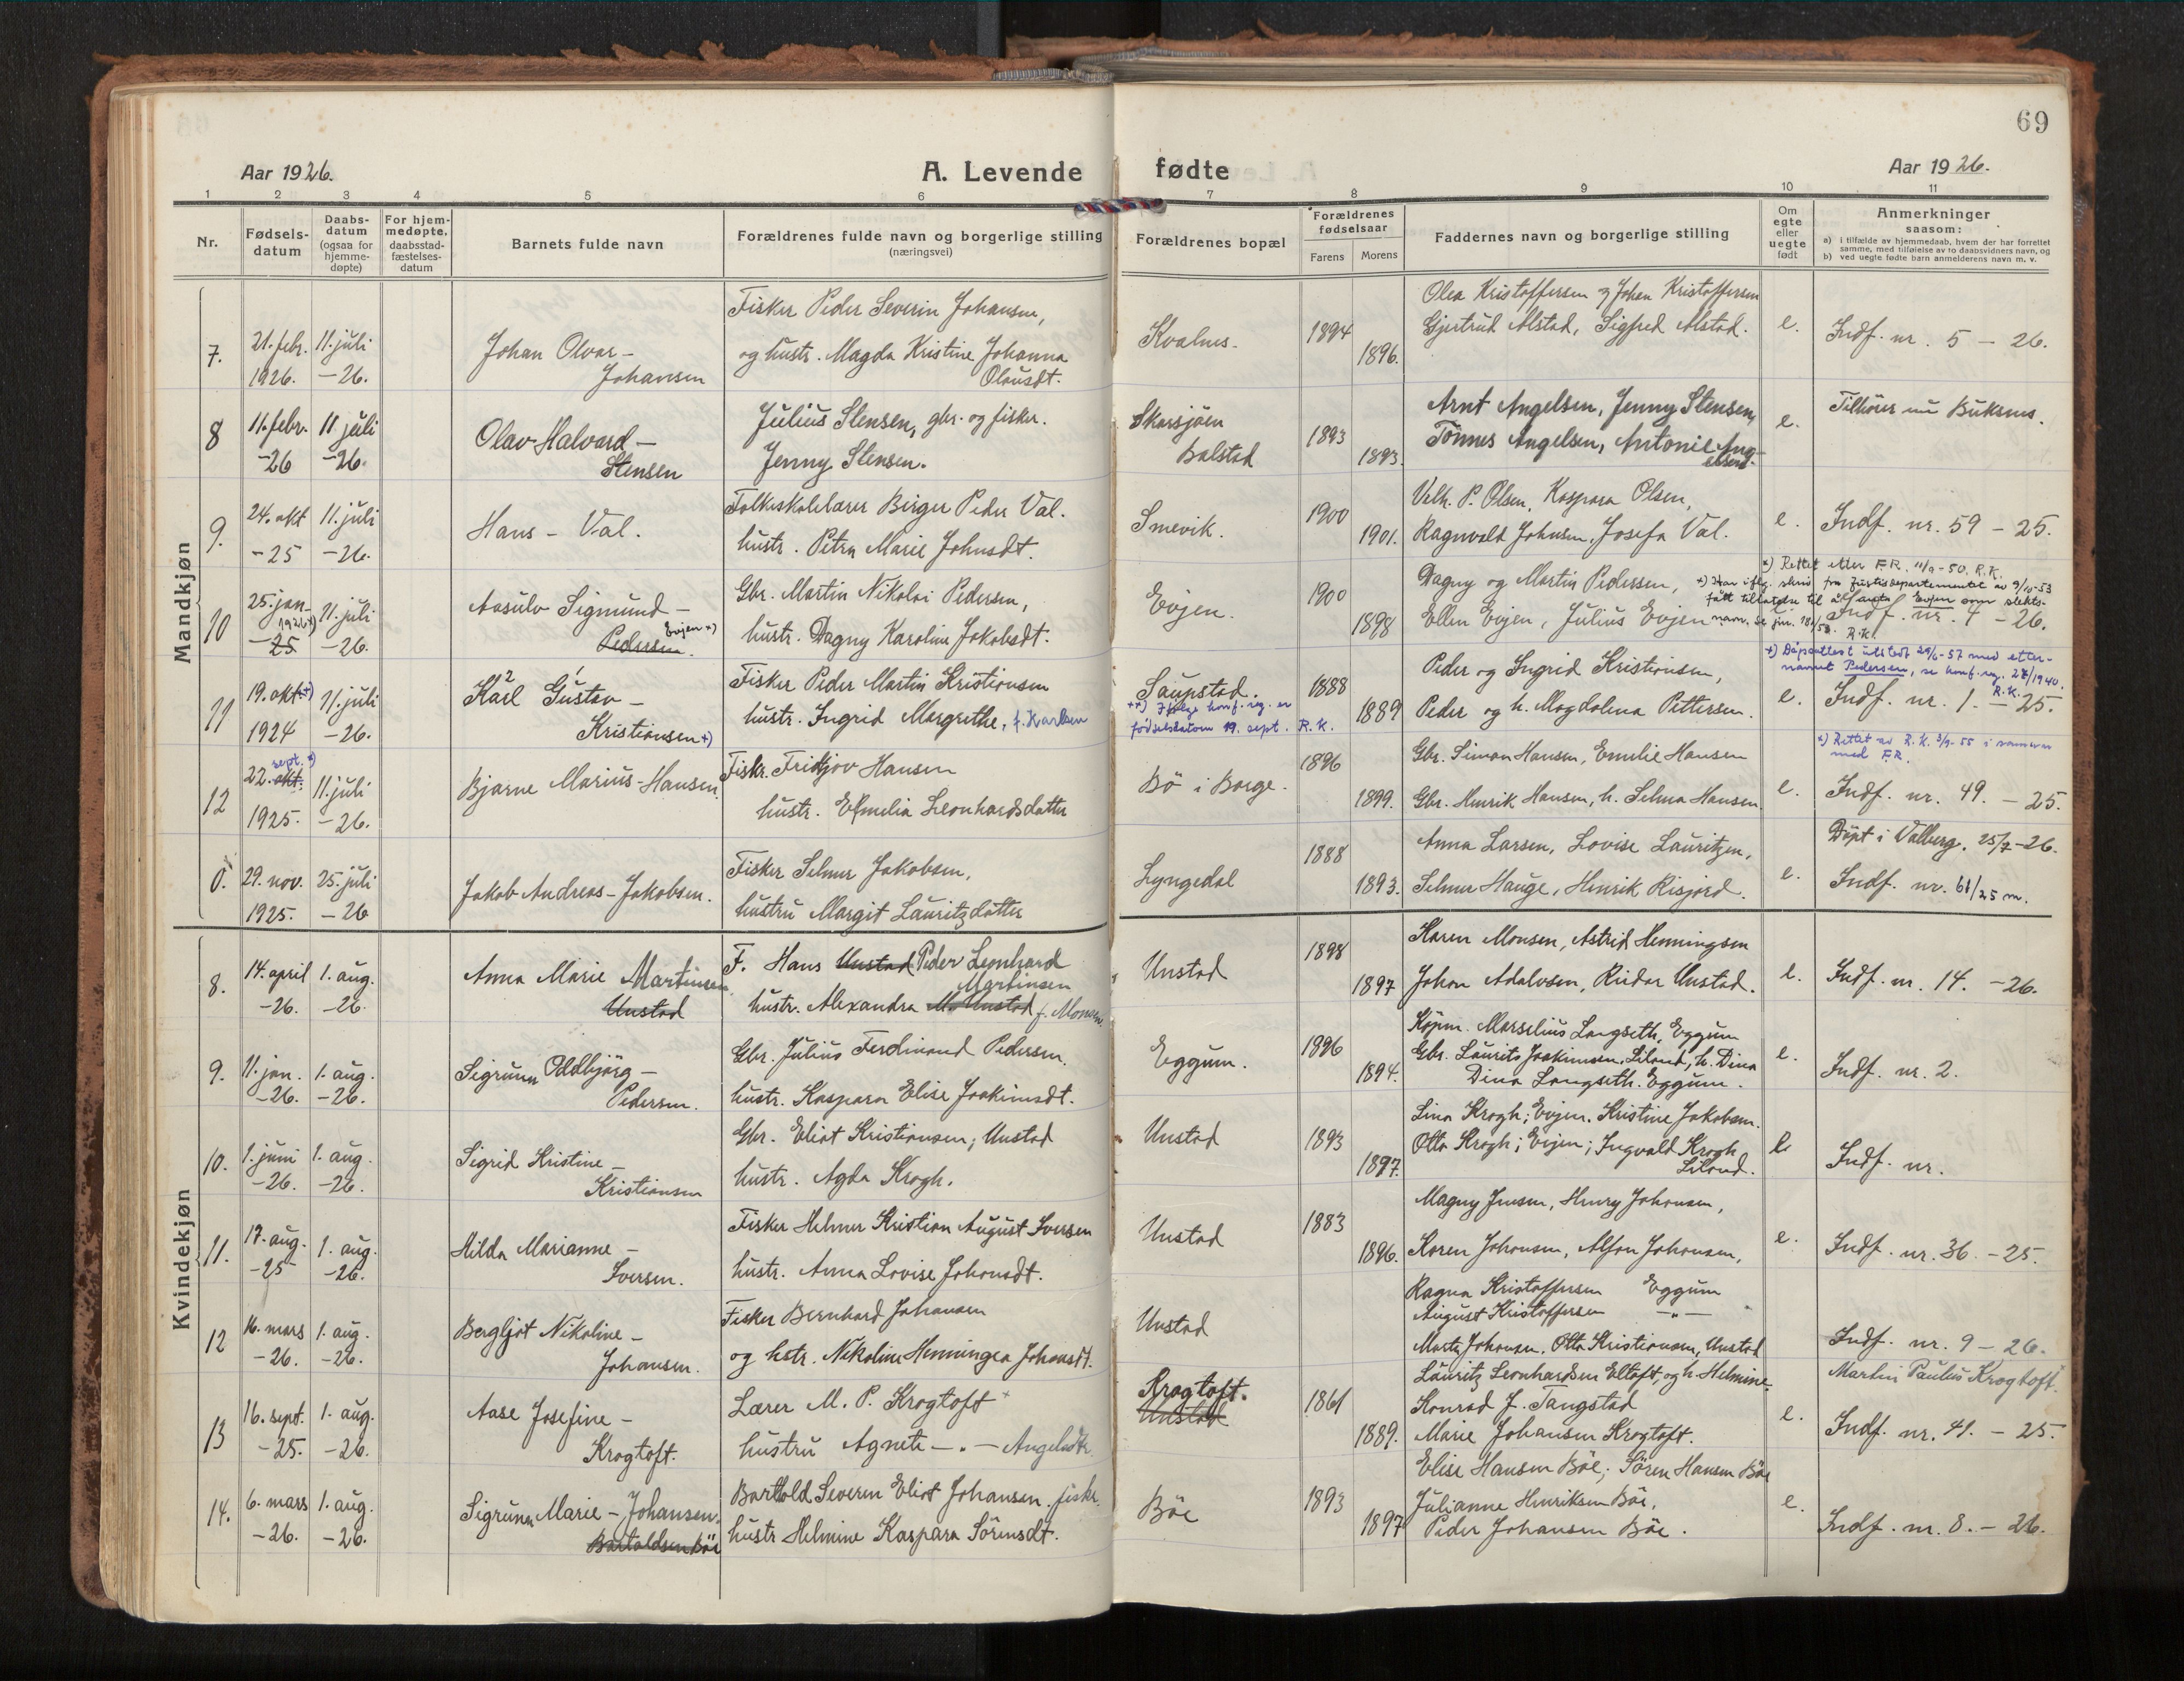 69
Aar 1926.
A. Levende fødte
Aar 1926.
1 2 3 4 5 6 7 8 9 10 11
Nr.
Fødsels-
datum
Daabs-
datum
(ogsaa for
hjemme-
døpte)
For hjem-
medøpte.
daabsstad-
fæstelses-
datum
Barnets fulde navn
Forældrenes fulde navn og borgerlige stilling
(næringsvei)
Forældrenes bopæl
Forældrenes
fødselsaar
Farens Morens
Faddernes navn og borgerlige stilling
Om
egte
eller
uegte
født
Anmerkninger
saasom:
a) i tilfælde av hjemmedaab, hvem der har forrettet
samme, med tilføielse av to daabsvidners navn, og
b) ved uegte fødte barn anmelderens navn m. v.
Mandkjøn
7.
21. febr.
1926.
11. juli
-26.
Johan Olvar -
Johansen
Fisker Peder Severin Johansen,
og hustr. Magda Kristine Johanna
Olausdt.
Kvalnes.
1894
1896.
Olea Kristoffersen og Johan Kristoffersen
Gjertrud Alstad, Sigfred Alstad.
e.
Indf. nr. 5 - 26.
8
11. febr.
-26
11 juli
-26.
Olav Halvard -
Stensen
Julius Stensen, gbr. og fisker.
Jenny Stensen.
Skarsjøen
Balstad
1893
1893.
Arnt Angelsen, Jenny Stensen,
Tönnes Angelsen, Antonie Ang-
elsen.
e.
Tilhører nu Buksnes.
9.
24. okt
-25
11. juli
-26.
Hans - Val.
Folkeskolelærer Birger Peder Val.
hustr. Petra Marie Johnsdt.
Smevik.
1900
1901.
Vilh. P. Olsen, Kaspara Olsen,
Ragnvald Johnsen, Josefa Val.
e.
Indf. nr. 59 - 25.
10
25. jan.
1926 x)
-25
11. juli
-26.
Aasulv Sigmund -
Evjen x)
Pedersen.
Gbr. Martin Nikolai Pedersen,
hustr. Dagny Karoline Jakobsdt.
Evjen.
1900
1898
Dagny og Martin Pedersen,
Ellen Evjen, Julius Evjen
x) Rettet etter F.R. 11/9-50. R.K.
x) Har iflg. skriv fra Justisdepartementet av 9/10-53
fått tillatelse til å anta Evjen som slekts-
navn.
R.K.
e.
Indf. nr. 7 - 26.
11
19. okt. xx)
1924
11. juli
-26.
2 1
Karl Gustav -
Kristiansen x)
Fisker Peder Martin Kristiansen
hustr. Ingrid Margrethe, f. Karlsen
Saupstad.
xx) Ifølge konf. reg. er
fødselsdatoen 19. sept. R.K.
1888
1889
Peder og Ingrid Kristiansen,
Peder og h. Magdalena Pettersen.
e.
x) Dåpsattest utstedt 24/6-57 med etter-
navnet Pedersen, se konf. reg. 27/1940.
R.K.
Indf. nr. 1. - 25.
12
sept. x)
22. okt.
1925.
11. juli
-26.
Bjarne Marius - Hansen.
Fisk. Fridtjov Hansen
hustr. Emelia Leonhardsdatter
Bö i Borge.
1896
1899.
Gbr. Simon Hansen, Emilie Hansen
Gbr. Henrik Hansen, h. Selma Hansen.
e.
x) Rettet av R.K. 3/9-55 i samsvar
med F.R.
Indf. nr. 49. - 25.
0.
29. nov.
1925.
25. juli
-26
Jakob Andreas - Jakobsen.
Fisker Selmer Jakobsen,
hustru Margit Lauritzdatter
Lyngedal
1888
1893.
Anna Larsen, Lovise Lauritzen,
Selmer Hauge, Henrik Risjord.
e.
Döpt i Valberg. 25/7-26.
Indf. nr. 61/25 m.
Kvindekjøn
8.
14. april
-26.
1. aug.
-26.
Anna Marie Martinsen
Unstad
F. Hans Unstad Peder Leonhard
Martinsen
hustr. Alexandra M. Unstad f. Monsen.
Unstad
1898
1897
Karen Monsen, Astrid Henningsen
Johan Adolvsen, Reidar Unstad.
e.
Indf. nr. 14. -26.
9.
11. jan.
-26.
1. aug.
-26.
Sigrunn Oddbjörg -
Pedersen.
Gbr. Julius Ferdinand Pedersen.
hustr. Kaspara Elise Joakimsdt.
Eggum.
1896
1894.
Kjøpm. Marselius Langseth, Eggum
Gbr. Laurits Joakimsen, Liland, h. Dina
Dina Langseth. Eggum.
e.
Indf. nr. 2.
10.
1. juni
-26.
1. aug.
-26.
Sigrid Kristine -
Kristiansen
Gbr. Eliot Kristiansen; Unstad
hustr. Agda Krogh.
Unstad
1893
1897.
Lina Krogh; Evjen. Kristine Jakobsen.
Otto Krogh; Evjen; Ingvald Krogh
Liland.
e
Indf. nr.
11.
17. aug.
-25
1. aug.
-26.
Hilda Marianne -
Iversen.
Fisker Helmer Kristian August Iversen
hustr. Anna Lovise Johansdt.
Unstad
1883
1896.
Magny Jensen, Henry Johansen,
Karen Johansen, Alfon Johansen,
e.
Indf. nr. 36. -25.
12
16. mars
-26.
1. aug.
-26.
Bergljot Nikoline -
Johansen.
Fisker Bernhard Johansen
og hstr. Nikoline Henningea Johansdt.
Unstad
Ragna Kristoffersen Eggum
August Kristoffersen -"-
Marty Johansen, Otto Kristiansen, Unstad
Indf. nr. 9 - 26.
13
16. sept.
-25.
1. aug.
-26.
Aase Josefine -
Krogtoft.
Lærer M. P. Krogtoft x
hustru Agnete -"- Angelsdtr.
Krogtoft.
Unstad
1861
1889.
Lauritz Leonhardsen Eltoft, og h. Helmine.
Konrad J. Tangstad
Marie Johansen Krogtoft.
e.
Martin Paulus Krogtoft.
Indf. nr. 41. - 25.
14.
6. mars
-26.
1. aug.
-26.
Sigrunn Marie - Johansen.
Bartoldsen Böe
Barthold Severin Eliot Johansen. fisker.
hustr Helmine Kaspara Sörensdt.
Böe
1893
1897
Elise Hansen Böe; Sören Hansen Böe
Julianne Henriksen Böe.
Peder Johansen Böe.
e.
Indf. nr. 8. - 26.